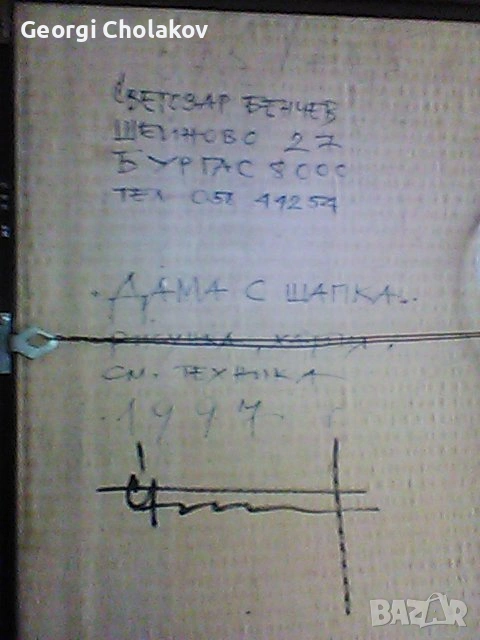 Georgi Cholakov
СВЕТОЗАР БЕНЧЕВ
ШЕЙНОВО 27
БУРГАС 8000
ТЕЛ 056 41254
"ДАМА С ШАПКА"
РИСУНКА, ХАРТИЯ,
СМ. ТЕХНИКА
1997
BAZAR